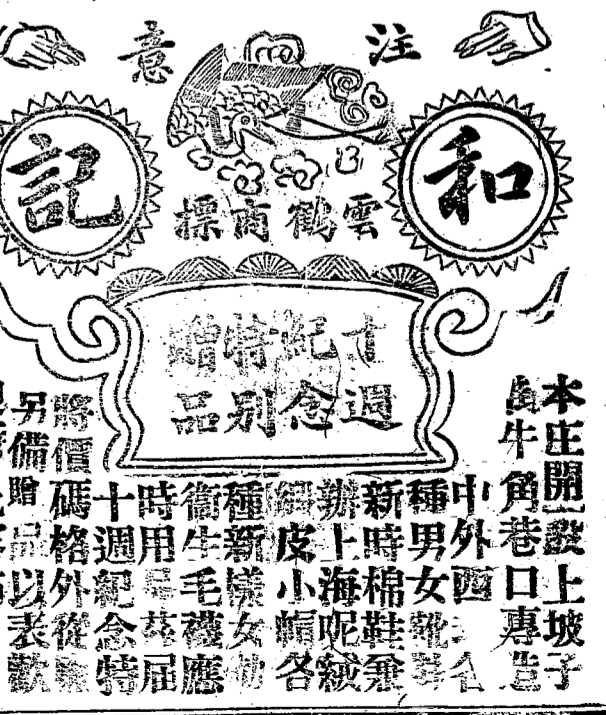 注意
和記
雲鶴商標
十週紀念特別贈品
本庄開設上坡子
牛角巷口專造
中外西
種男女靴
新時棉鞋兼
辦上海呢絨
皮小帽各
種新樣女
衞生毛襪應
時用　　茲屆
十週紀念特
將價碼格外從
另備贈品以表歡